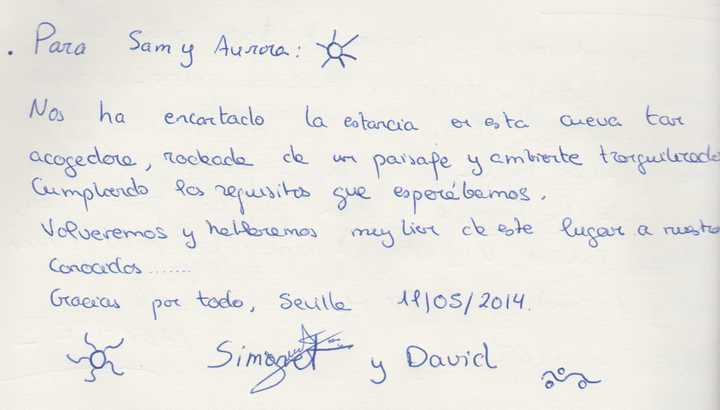 . Para Sam y Aurora:
Nos ha encantado la estancia en esta cueva tan
acogedora, rodeada de un paisaje y ambiente tranquilizador
Cumpliendo los requisitos que esperábamos.
Volveremos y hablaremos muy bien de este lugar a nuestro
Conocidos.......
Gracias por todo, Sevilla 11/05/2014.
y David